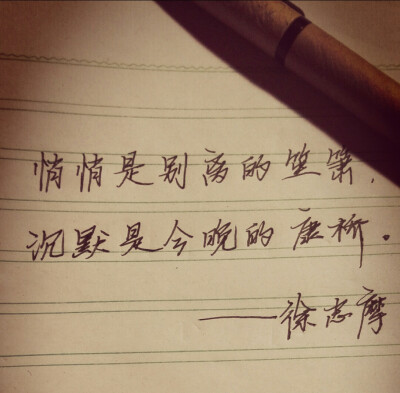 悄悄是别离的笙箫，
沉默是今晚的康桥。
——徐志摩